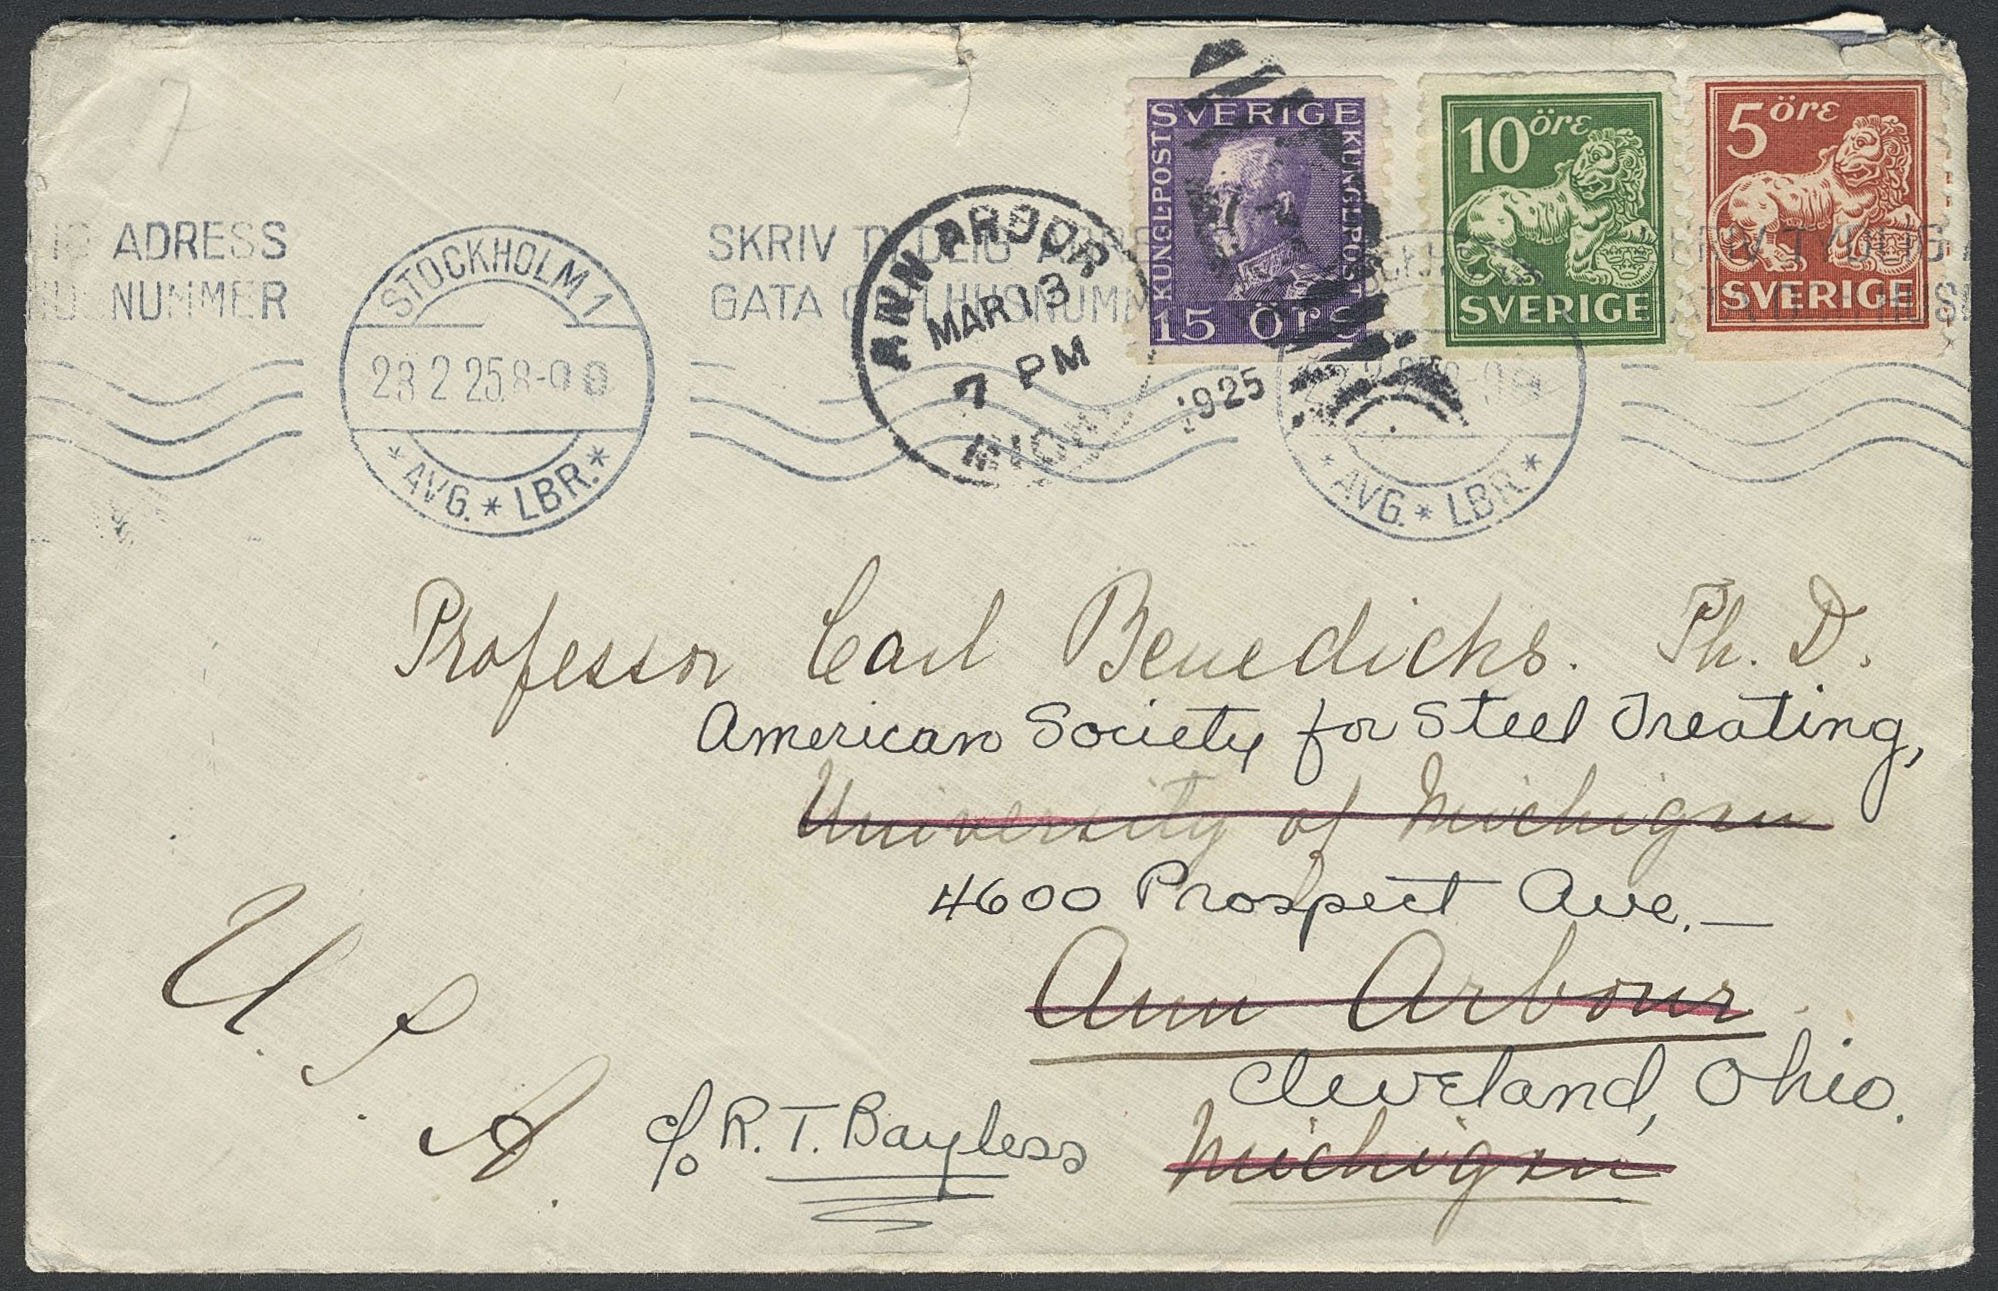 7
SVERIGE
KUNGL.POST
KUNGL.POST
15 öre
10 öre
SVERIGE
5 öre
SVERIGE
ADRESS
NUMMER
STOCKHOLM 1
23 2 25.8-9
* AVG. * LBR. *
SKRIV TYDLIG
GATA OCH HUSNUMM
ANN ARBOR
MAR 13
7 PM
MICH.
1925
* AVG. * LBR. *
SKRIV TYDLIG A
Professor Carl Benedicks. Ph. D.
American Society for Steel Treating,
University of Michigan
4600 Prospect Ave.—
Ann Arbour
Cleveland, Ohio.
Michigan
U. S. A.
c/o R. T. Bayless